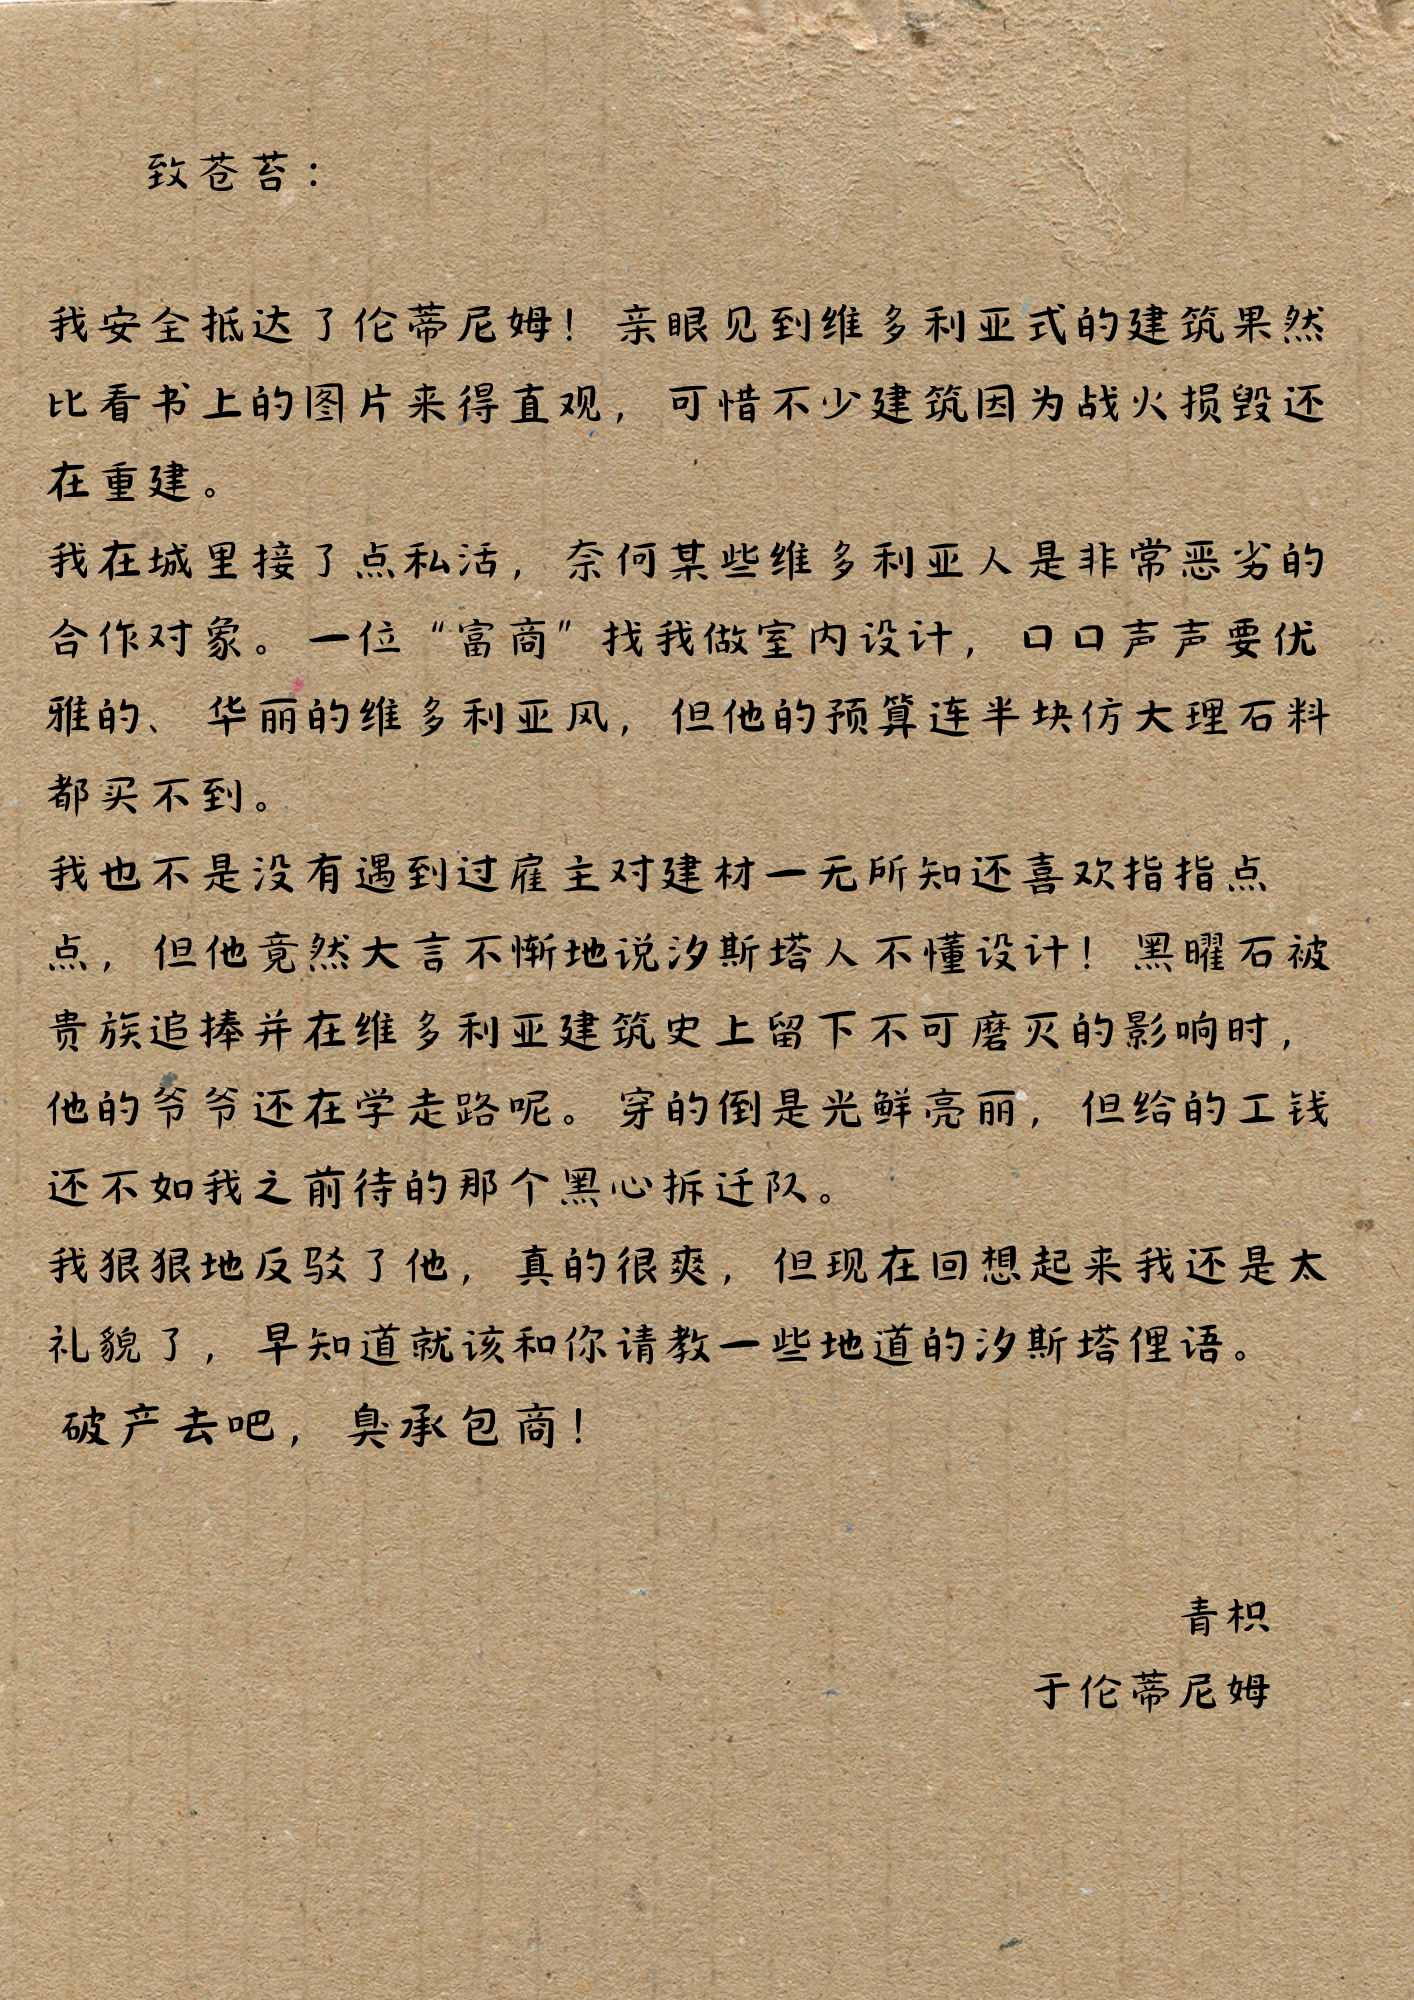 致苍苔：
我安全抵达了伦蒂尼姆！亲眼见到维多利亚式的建筑果然
比看书上的图片来得直观，可惜不少建筑因为战火损毁还
在重建。
我在城里接了点私活，奈何某些维多利亚人是非常恶劣的
合作对象。一位“富商”找我做室内设计，口口声声要优
雅的、华丽的维多利亚风，但他的预算连半块仿大理石料
都买不到。
我也不是没有遇到过雇主对建材一无所知还喜欢指指点
点，但他竟然大言不惭地说汐斯塔人不懂设计！黑曜石被
贵族追捧并在维多利亚建筑史上留下不可磨灭的影响时，
他的爷爷还在学走路呢。穿的倒是光鲜亮丽，但给的工钱
还不如我之前待的那个黑心拆迁队。
我狠狠地反驳了他，真的很爽，但现在回想起来我还是太
礼貌了，早知道就该和你请教一些地道的汐斯塔俚语。
破产去吧，臭承包商！
青枳
于伦蒂尼姆